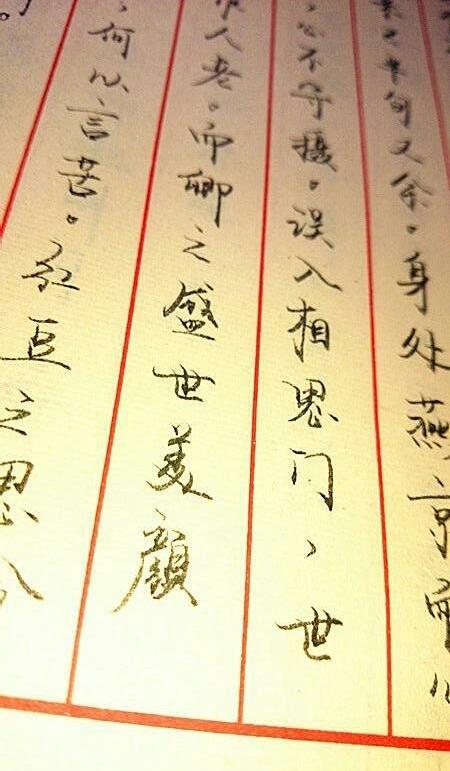 半旬又余。身处燕京而心
不守摄。误入相思门，世
人老。而卿之盛世美颜
，何以言苦。红豆之思今